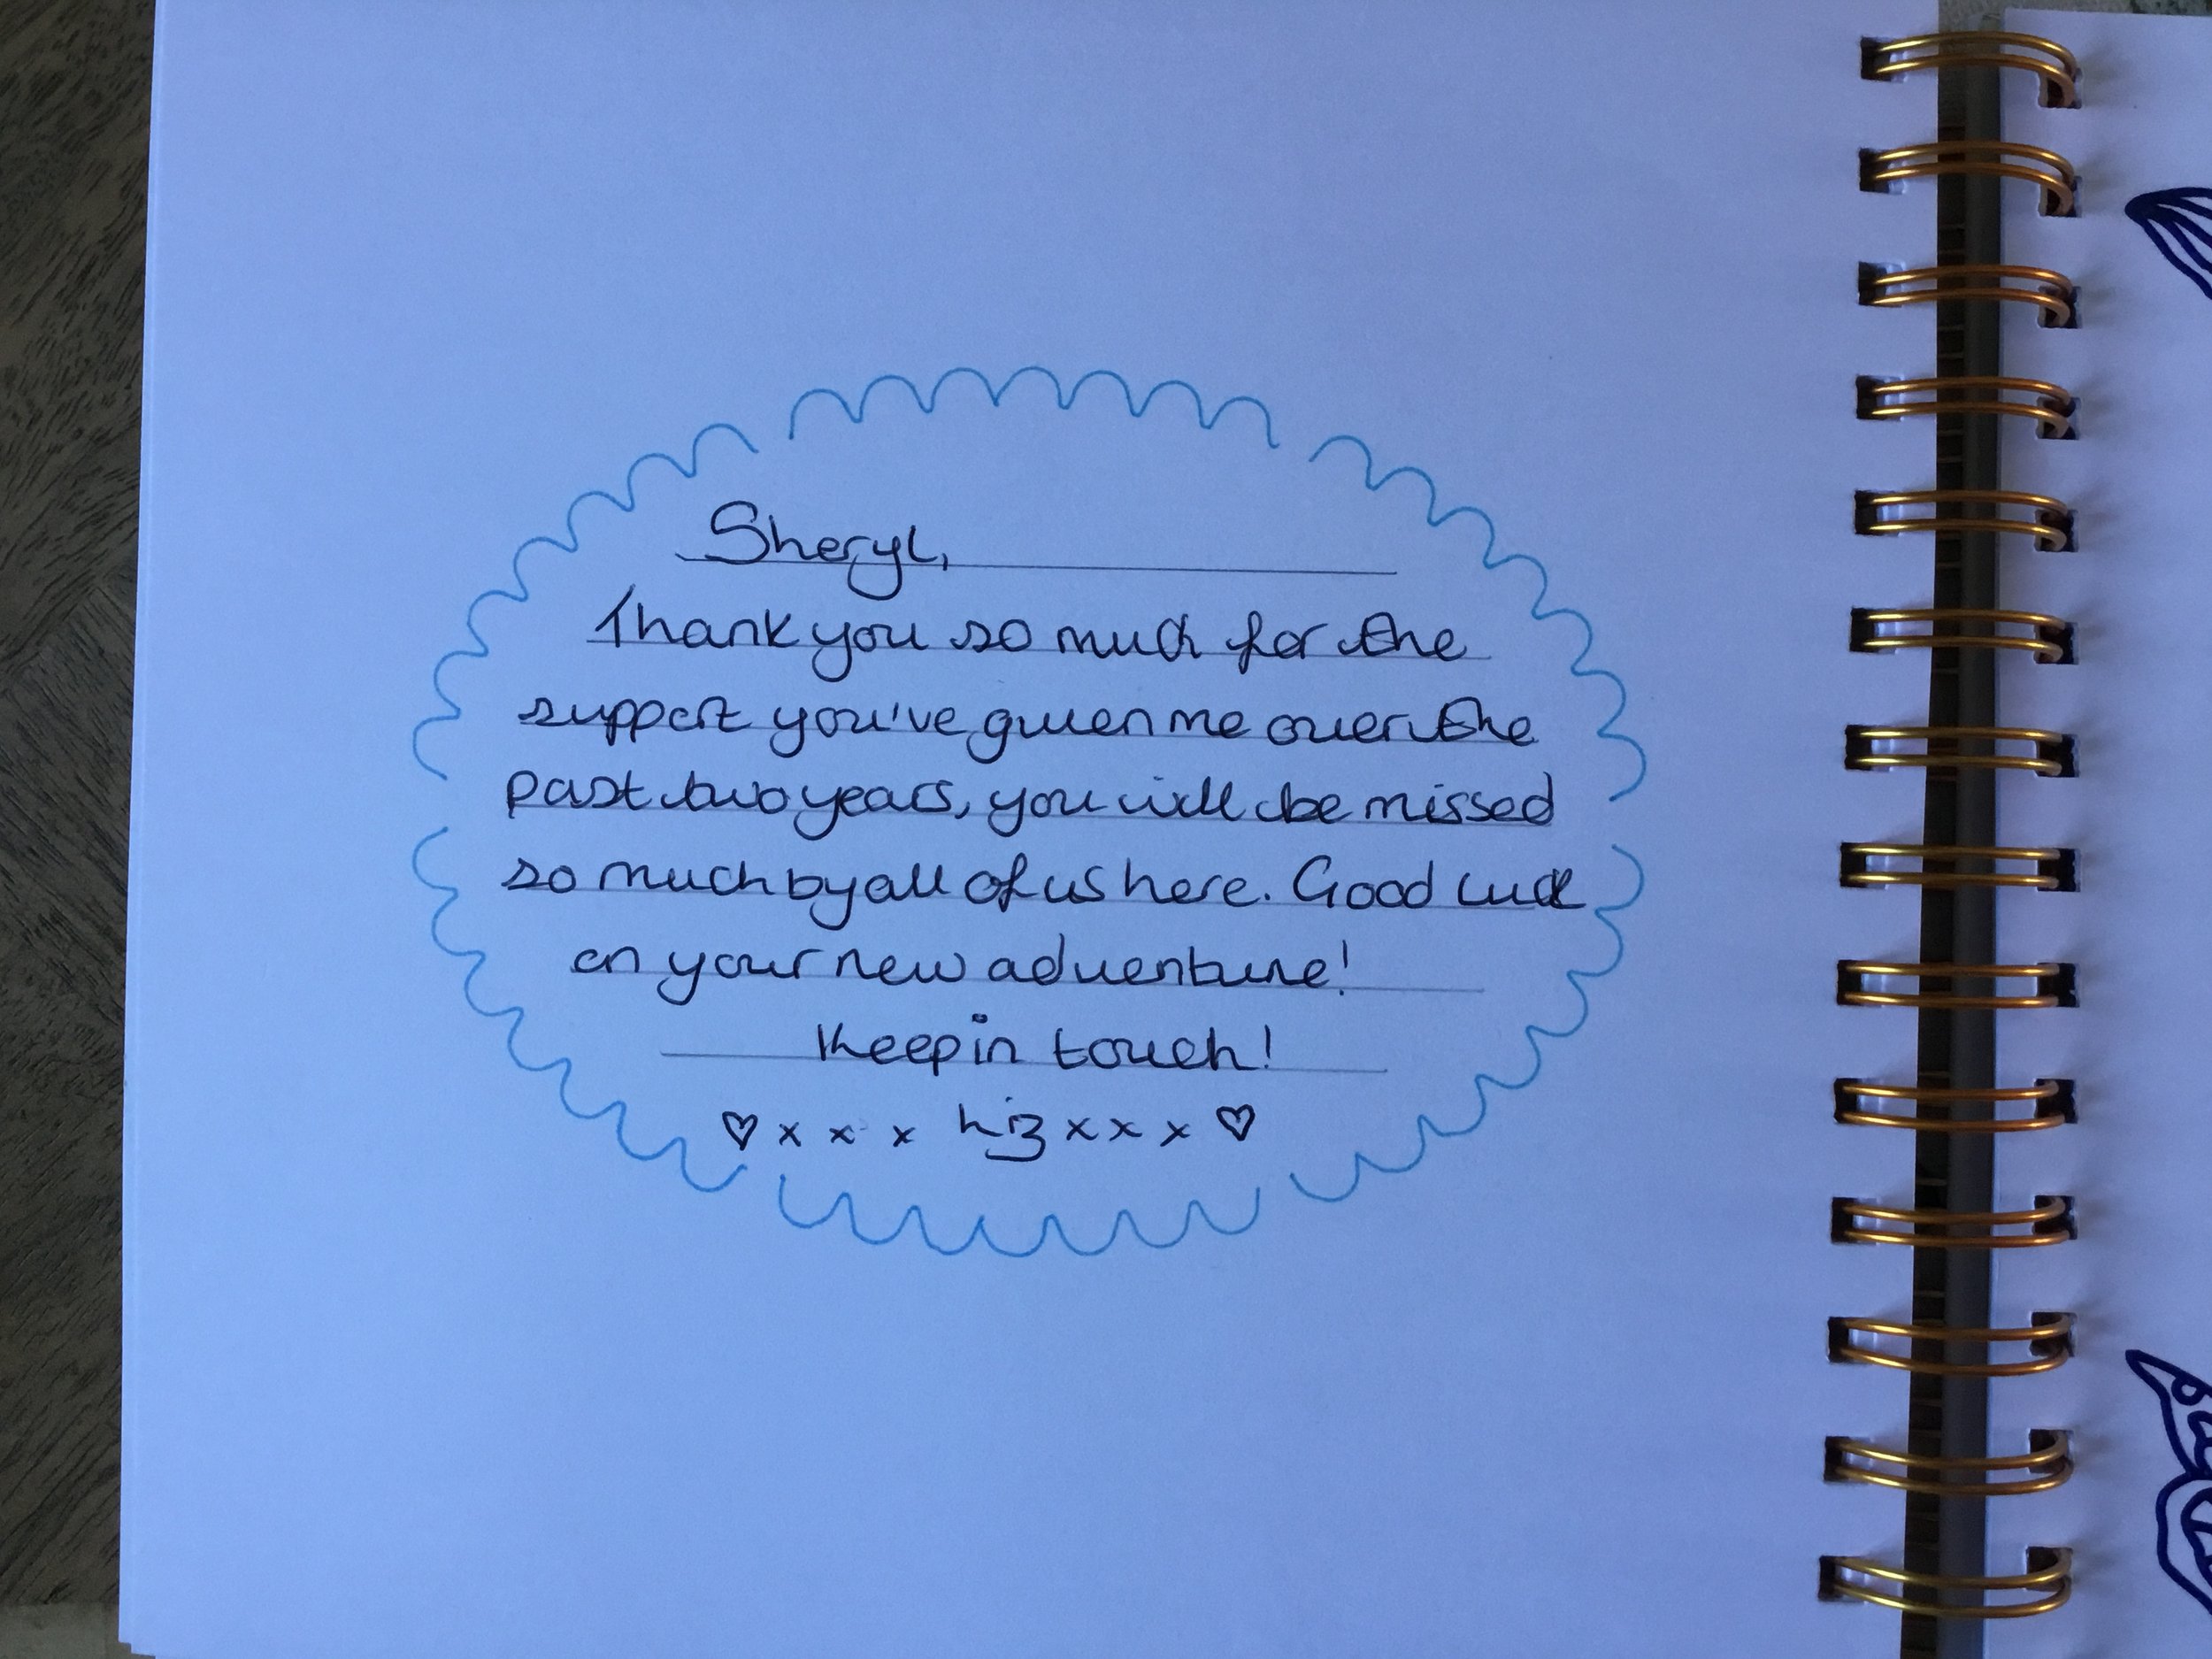 Sheryl,
Thank you so much for the
support you've given me over the
past two years, you will be missed
so much by all of us here. Good luck
on your new adventure!
Keep in touch!
♡ x x x Liz x x x ♡